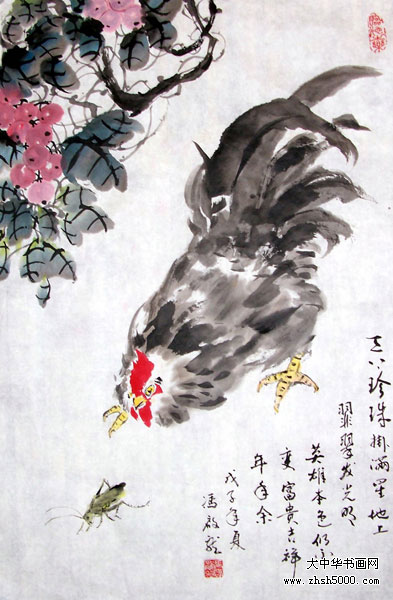 天下珍珠掛滿星地上
翡翠发光明
英雄本色仍不
变富貴吉祥
年年余
戊子年夏
大中华书画网
www.zhsh5000.com